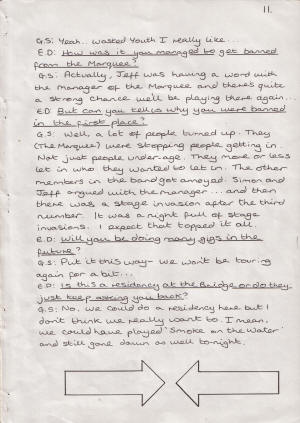 11.
G.S: Yeah.. Wasted Youth I really like...
E.D: How was it you managed to get banned
from the Marquee?
G.S: Actually, Jeff was having a word with
the Manager of the Marquee and there's quite
a strong chance we'll be playing there again...
E.D: But can you tell us why you were banned
in the first place?
G.S: Well, a lot of people turned up. They
(The Marquee) were stopping people getting in.
Not just people under-age. They more or less
let in who they wanted to let in. The other
members in the band got annoyed. Simon and
Jeff argued with the manager... and then
there was a stage invasion after the third
number. It was a night full of stage
invasions. I expect that topped it all.
E.D: Will you be doing many gigs in the
future?
G.S: Put it this way- we won't be touring
again for a bit...
E.D: Is this a residency at the Bridge or do they
just keep asking you back?
G.S: No. We could do a residency here but I
don't think we really want to. I mean,
we could have played 'Smoke on the Water'
and still gone down as well tonight.